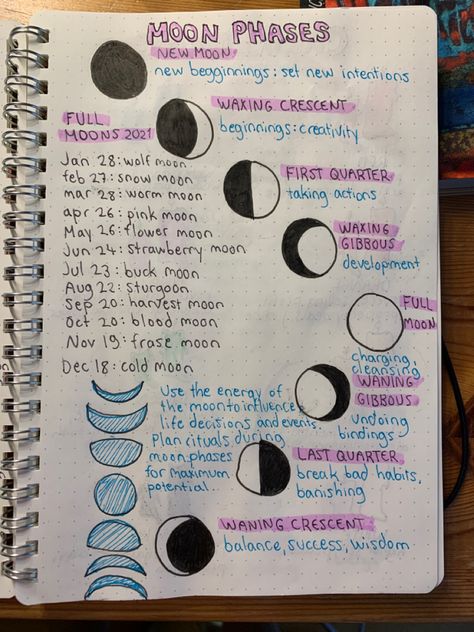 MOON PHASES
NEW MOON
new begginnings: set new intentions
WAXING CRESCENT
beginnings: creativity
FULL
MOONS 2021
Jan 28: wolf moon
feb 27: snow moon
mar 28: worm moon
apr 26: pink moon
May 26: flower moon
Jun 24: strawberry moon
Jul 23: buck moon
Aug 22: sturgoon
Sep 20: harvest moon
Oct 20: blood moon
Nov 19: frase moon
Dec 18: cold moon
FIRST QUARTER
taking actions
WAXING
GIBBOUS
development
FULL
MOON
charging,
cleansing
WANING
GIBBOUS
undoing
bindings
Use the energy of
the moon to influence
life decisions and events.
Plan rituals during
moon phases
for maximum
potential...
LAST QUARTER
break bad habits,
banishing
WANING CRESCENT
balance, success, wisdom